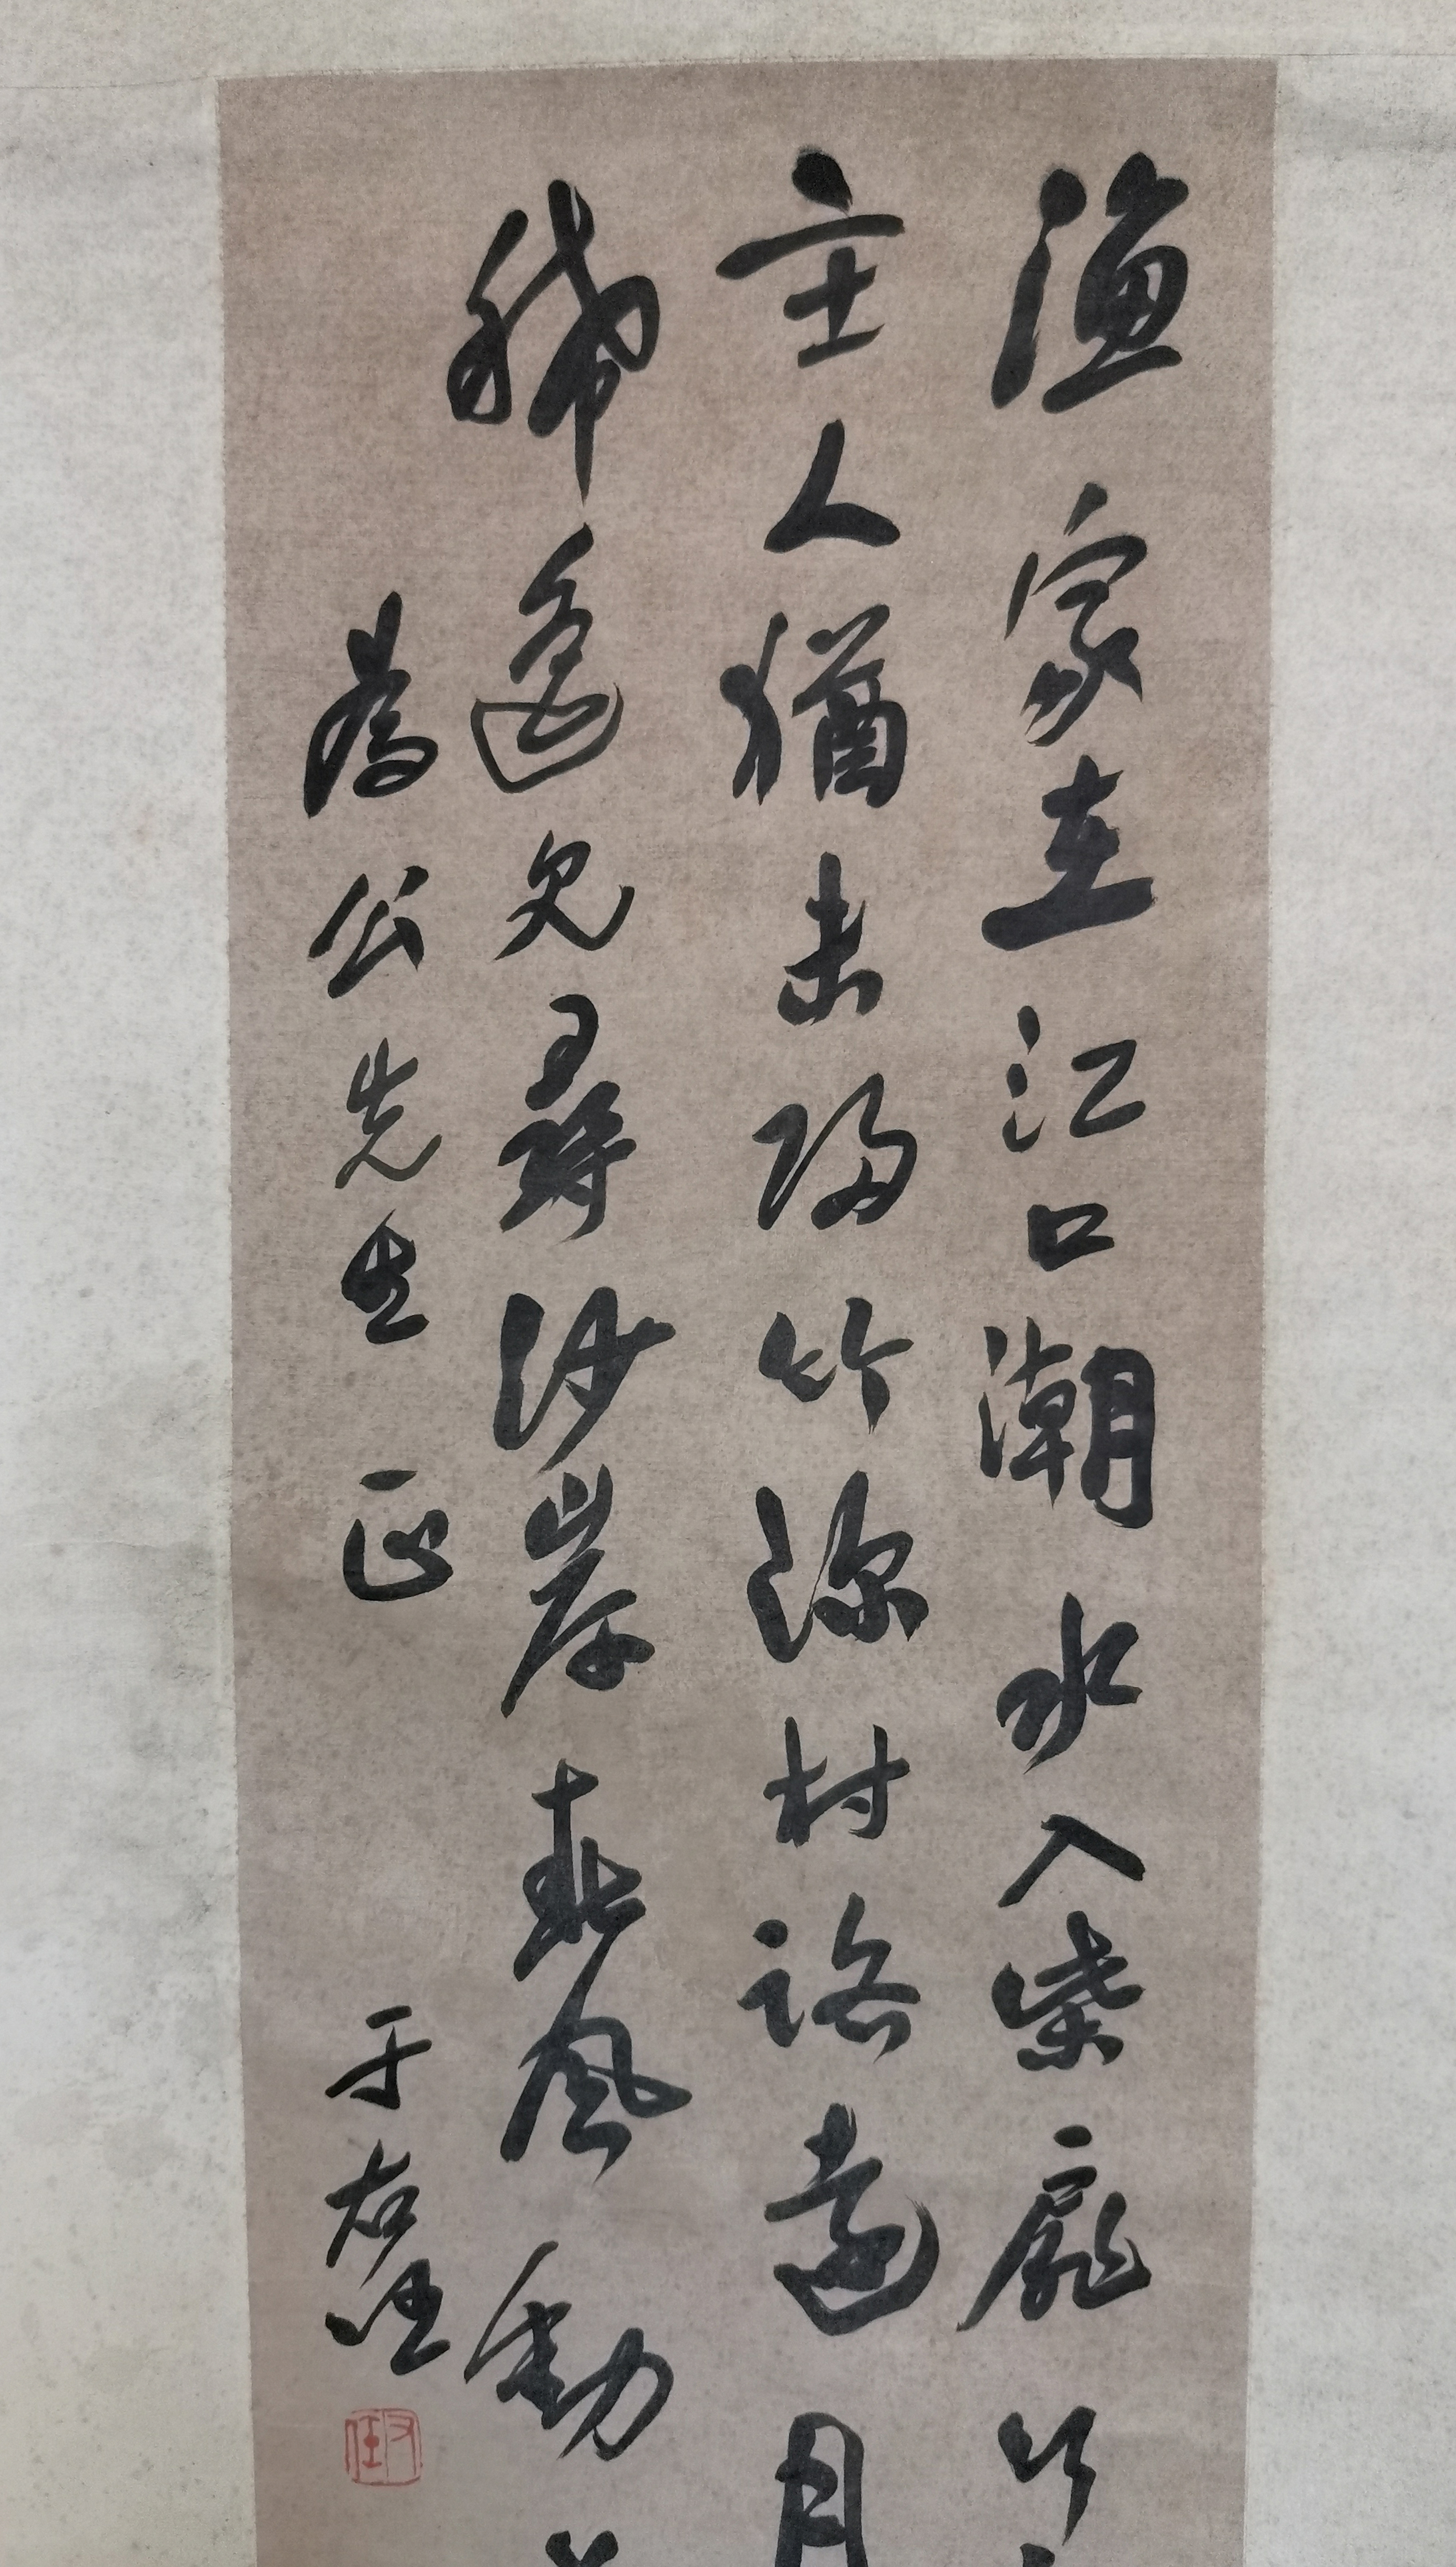 漁家在江口潮水入柴扉行
主人猶未歸竹深村路遠月
稀遙見尋沙岸春風動
為公先生正 于右任
右任